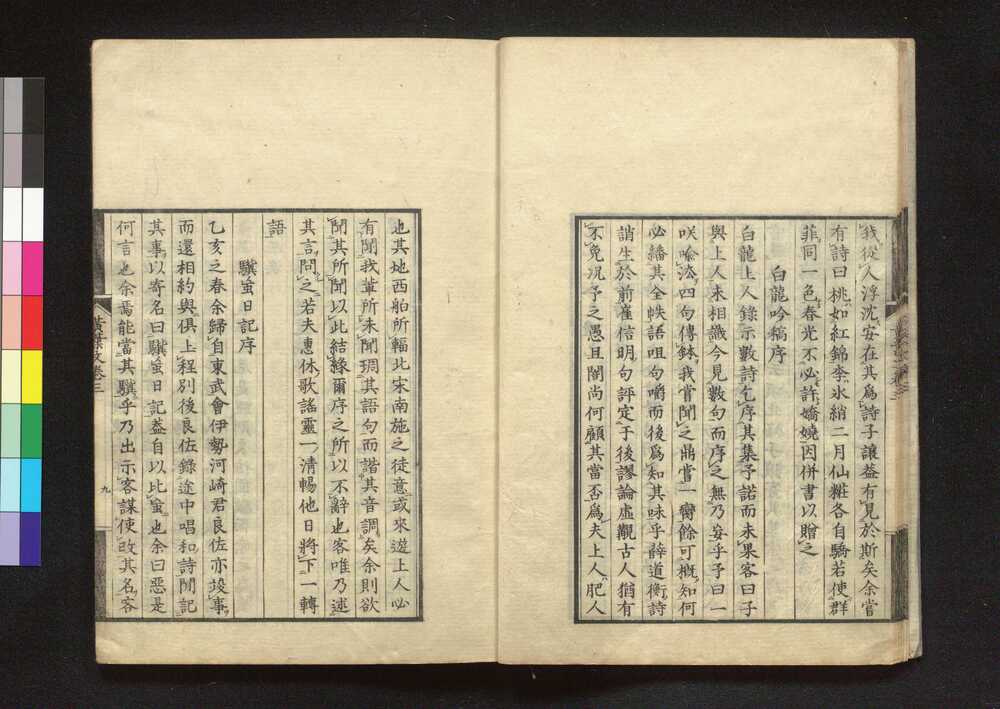 我從人浮沈安在其爲詩子讓益有見於斯矣余嘗
有詩曰桃如紅錦李氷綃二月仙糚各自驕若使群
菲同一色春光不必許嬌嬈因併書以贈之
白龍吟稿序
白龍上人錄示數詩乞序其集予諾而未果客曰子
與上人未相識今見數句而序之無乃妄乎予曰一
咲喩法四句傳鉢我嘗聞之鼎嘗一臠餘可概知何
必繙其全帙語咀句嚼而後爲知其味乎薛道衡詩
誚生於前崔信明句評定于後謬論虛觀古人猶有
不免况予之愚且闇尚何顧其當否爲夫上人肥人
也其地西舶所輻北宋南施之徒意或來遊上人必
有聞我輩所未聞琱其語句而諧其音調矣余則欲
聞其所聞以此結緣爾序之所以不辭也客唯乃述
其言問之若夫惠休歌謠靈一清暢他日將下一轉
語
驥蝱日記序
乙亥之春余歸自東武會伊勢河崎君良佐亦竣事
而還相約與俱上程別後良佐錄途中唱和詩聞記
其事以寄名曰驥蝱日記益自以比蝱也余曰惡是
何言也余焉能當其驥乎乃出示客謀使改其名客
黃葉文卷三
九